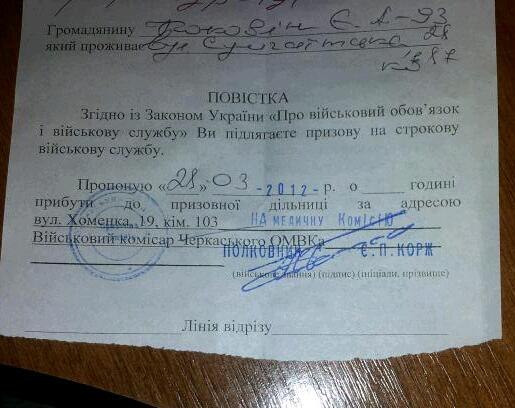 Громадянину
який проживає вул. Сумгаїтська 28
ПОВІСТКА
Згідно із Законом України «Про військовий обов’язок
і військову службу» Ви підлягаєте призову на строкову
військову службу.
Пропоную «28» 03 -2012- р. о _____ годині
прибути до призовної дільниці за адресою
вул. Хоменка, 19, кім. 103 НА МЕДИЧНУ КОМІСІЮ
Військовий комісар Черкаського ОМВКа
ПОЛКОВНИК Є.П. КОРЖ
(військове звання) (підпис) (ініціали, прізвище)
Лінія відрізу